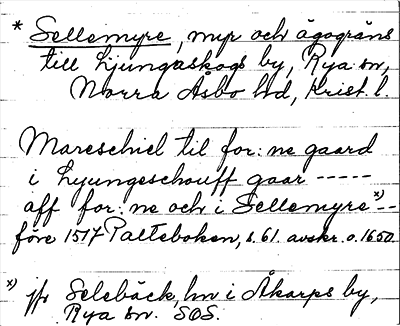 * Sellemyre, myr och ägogräns
till Ljungaskogs by, Rya sn,
Norra Åsbo hd, Krist. l.
Mareschiel til for: ne gaard
i Lyungeschouff gaar -----
aff for: ne och i Sellemyre x) --
före 1517 Palteboken, s. 61 avskr. o. 1650.
x) jfr Selebäck, hn i Åkarps by,
Rya sn. SOS.